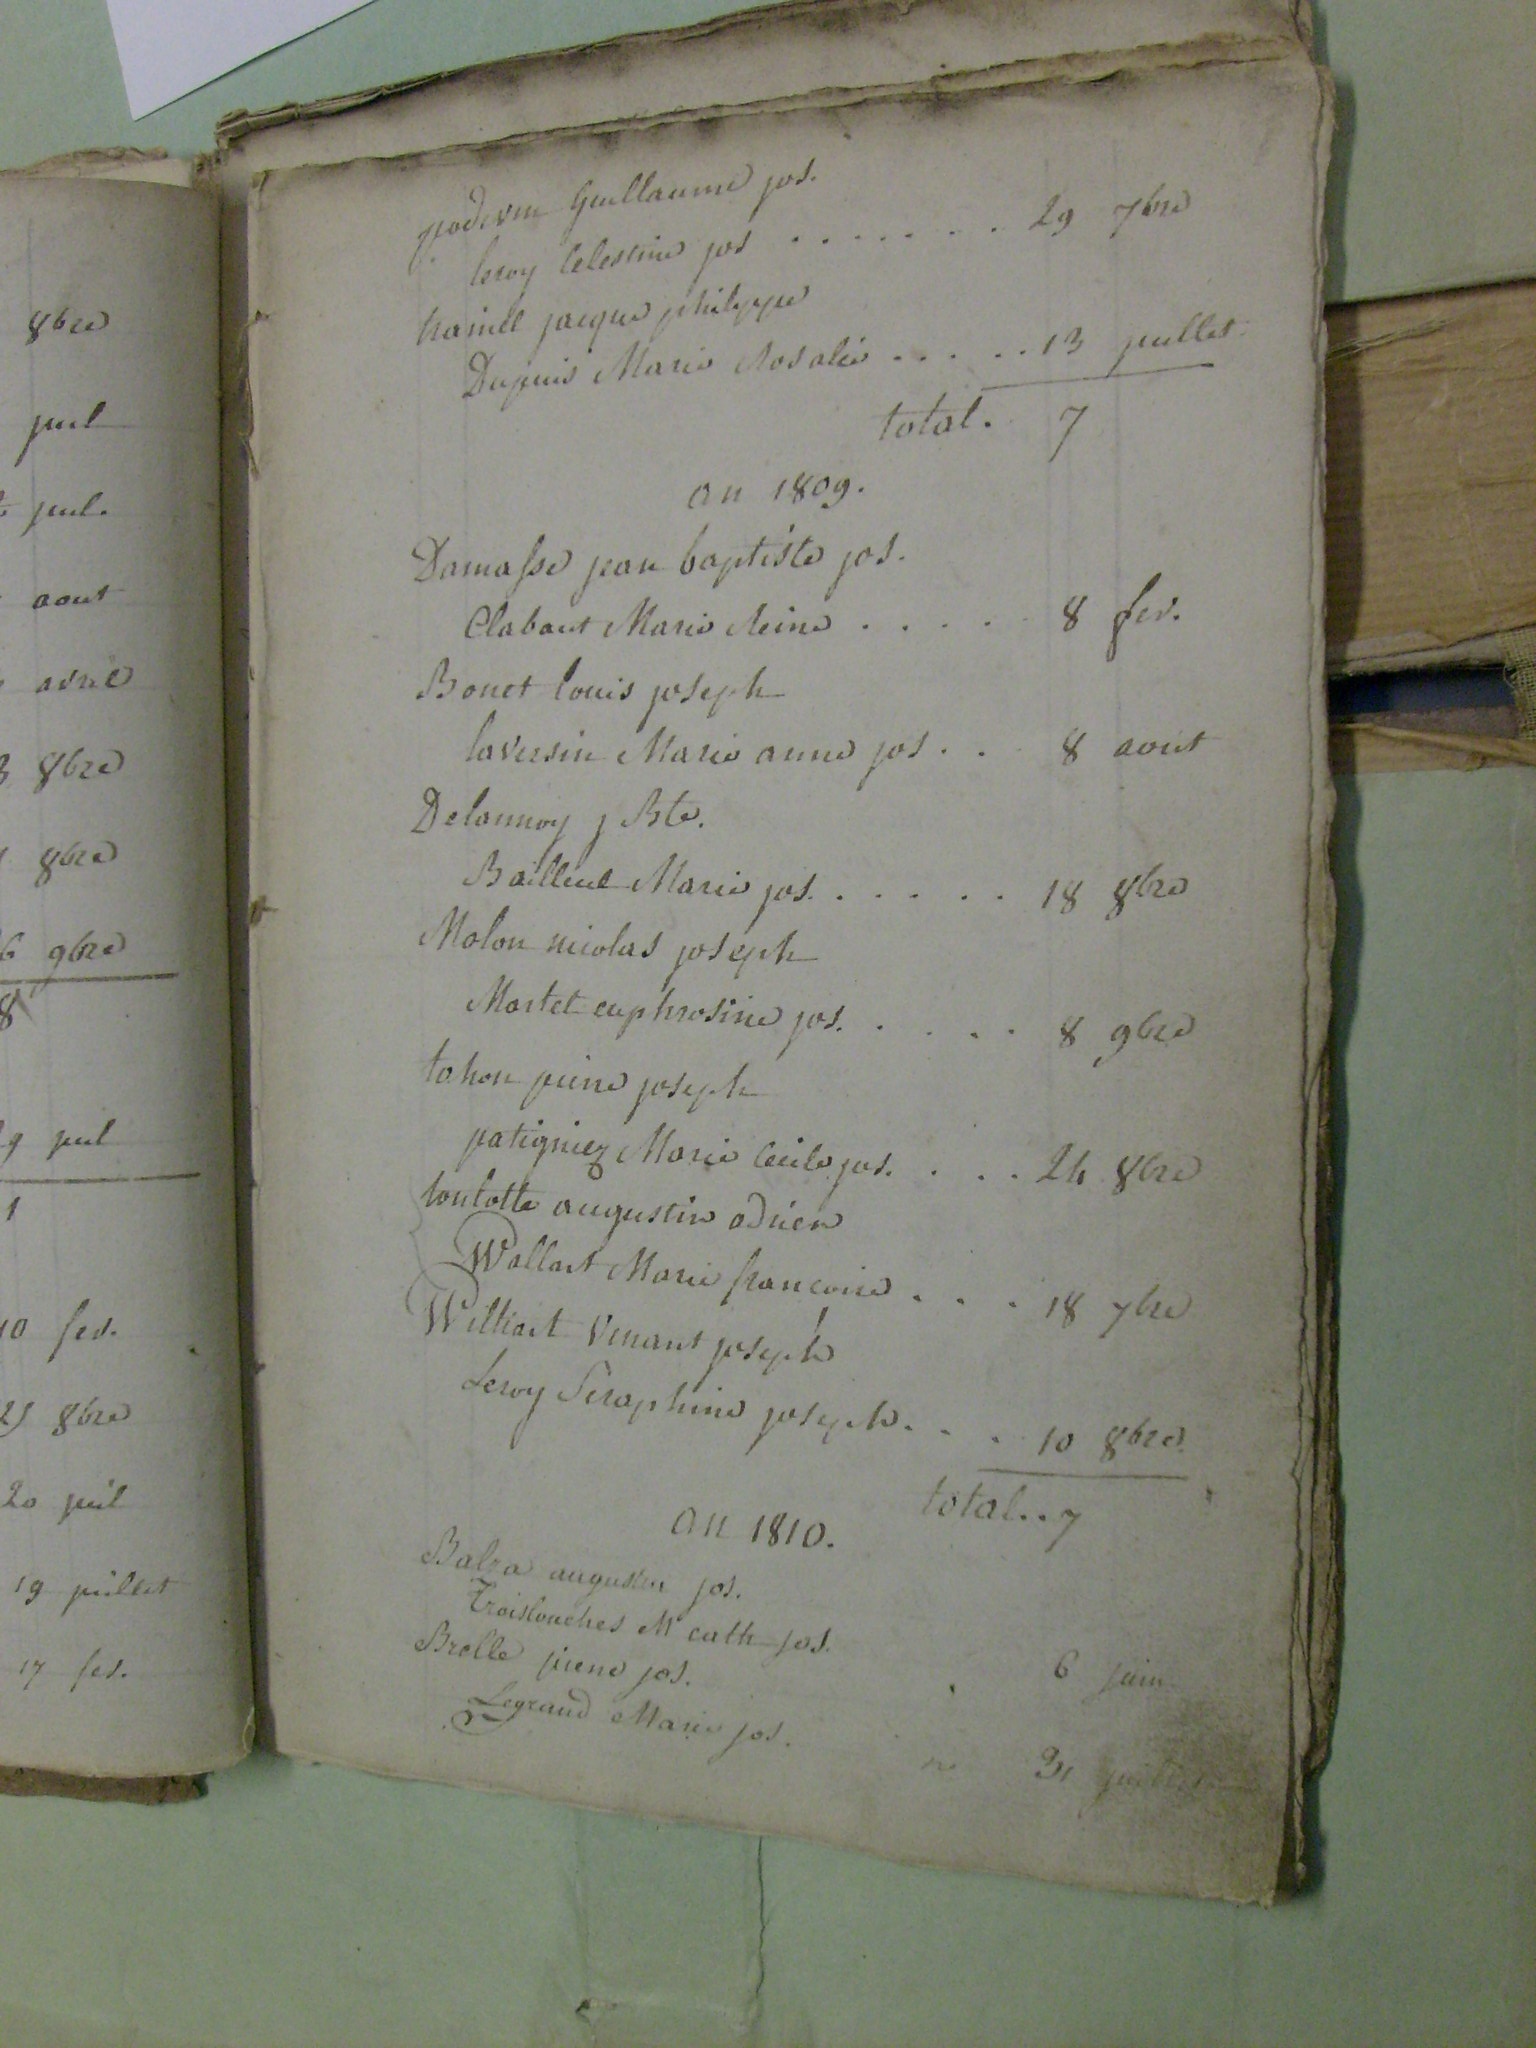 8bre
juil
juil.
aout
avril
8bre
8bre
6 9bre
8
9 juil
1
10 fev.
8bre
20 juil
19 juillet
17 fev.
poderin Guillaume jos.
leroy Celestine jos . . . . . . . 29 7bre
hainel jacque philippe
Dupuis Marie Rosalie . . . . . 13 juillet
total. 7
an 1809.
Damasse jean baptiste jos.
Clabaut Marie Reine . . . . . 8 fev.
Bouet louis joseph
laversin Marie anne jos . . 8 aout
Delannoy j Bte.
Bailleul Marie jos. . . . . . 18 8bre
Molon nicolas joseph
Martet euphrosine jos. . . . . 8 9bre
tahon pierre joseph
patigniez Marie Cecile jos. . . . 24 8bre
toulotte augustin adrien
Wallart Marie francoise . . . 18 7bre
Williart Venant joseph
Leroy Seraphine joseph . . . 10 8bre.
total.. 7
an 1810.
Balza augustin jos.
Troislouches M cath jos. 6 juin
Brelle pierre jos.
Legrand Marie jos. 31 juillet